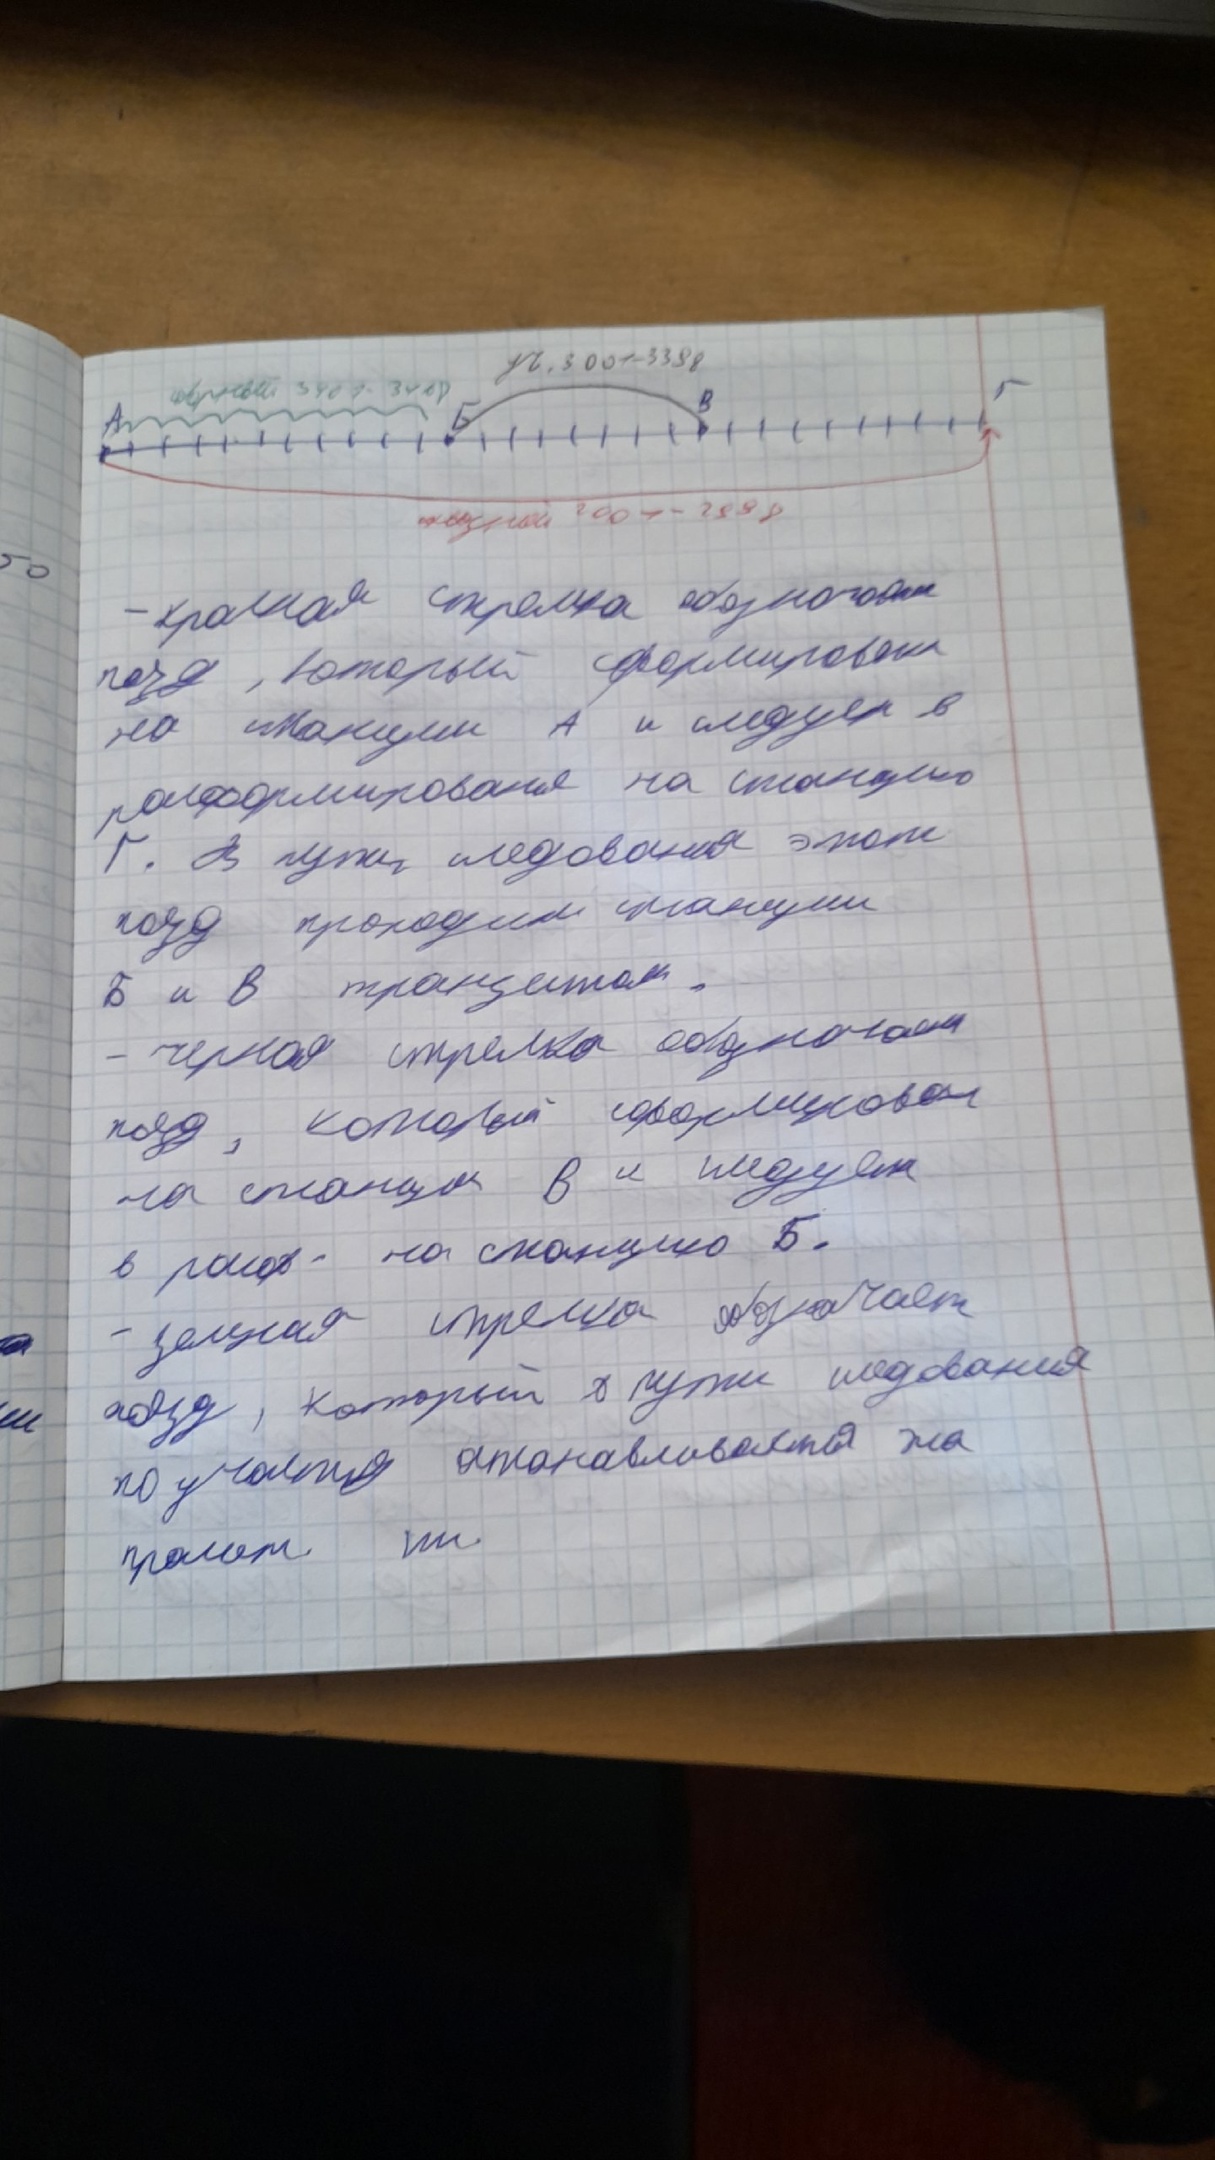 уч. 3001-3398
сборный 3401-3498
А Б В Г
сквозной 2001-2998
50
- красная стрелка обозначает
поезд, который сформирован
на станции А и следует в
расформирования на станцию
Г. В пути следования этот
поезд проходит станции
Б и В транзитом.
- черная стрелка обозначает
поезд, который сформирован
на станции В и следует
в расф. на станцию Б.
- зеленая стрелка обозначает
поезд, который в пути следования
по участка останавливается на
промеж.